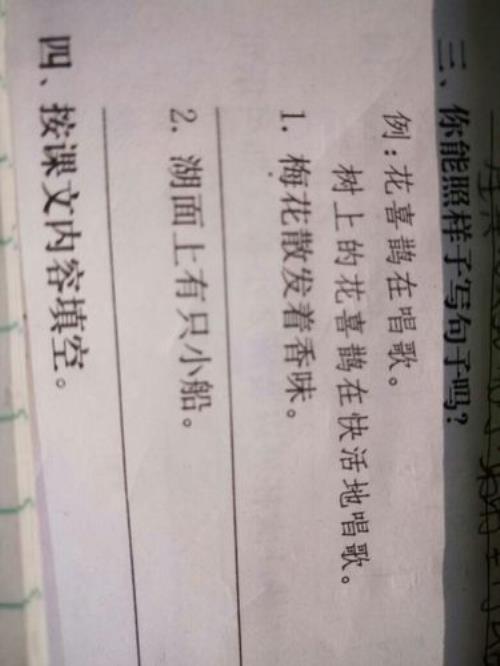 三、你能照样子写句子吗?
例:花喜鹊在唱歌。
树上的花喜鹊在快活地唱歌。
1. 梅花散发着香味。
2. 湖面上有只小船。
四、按课文内容填空。